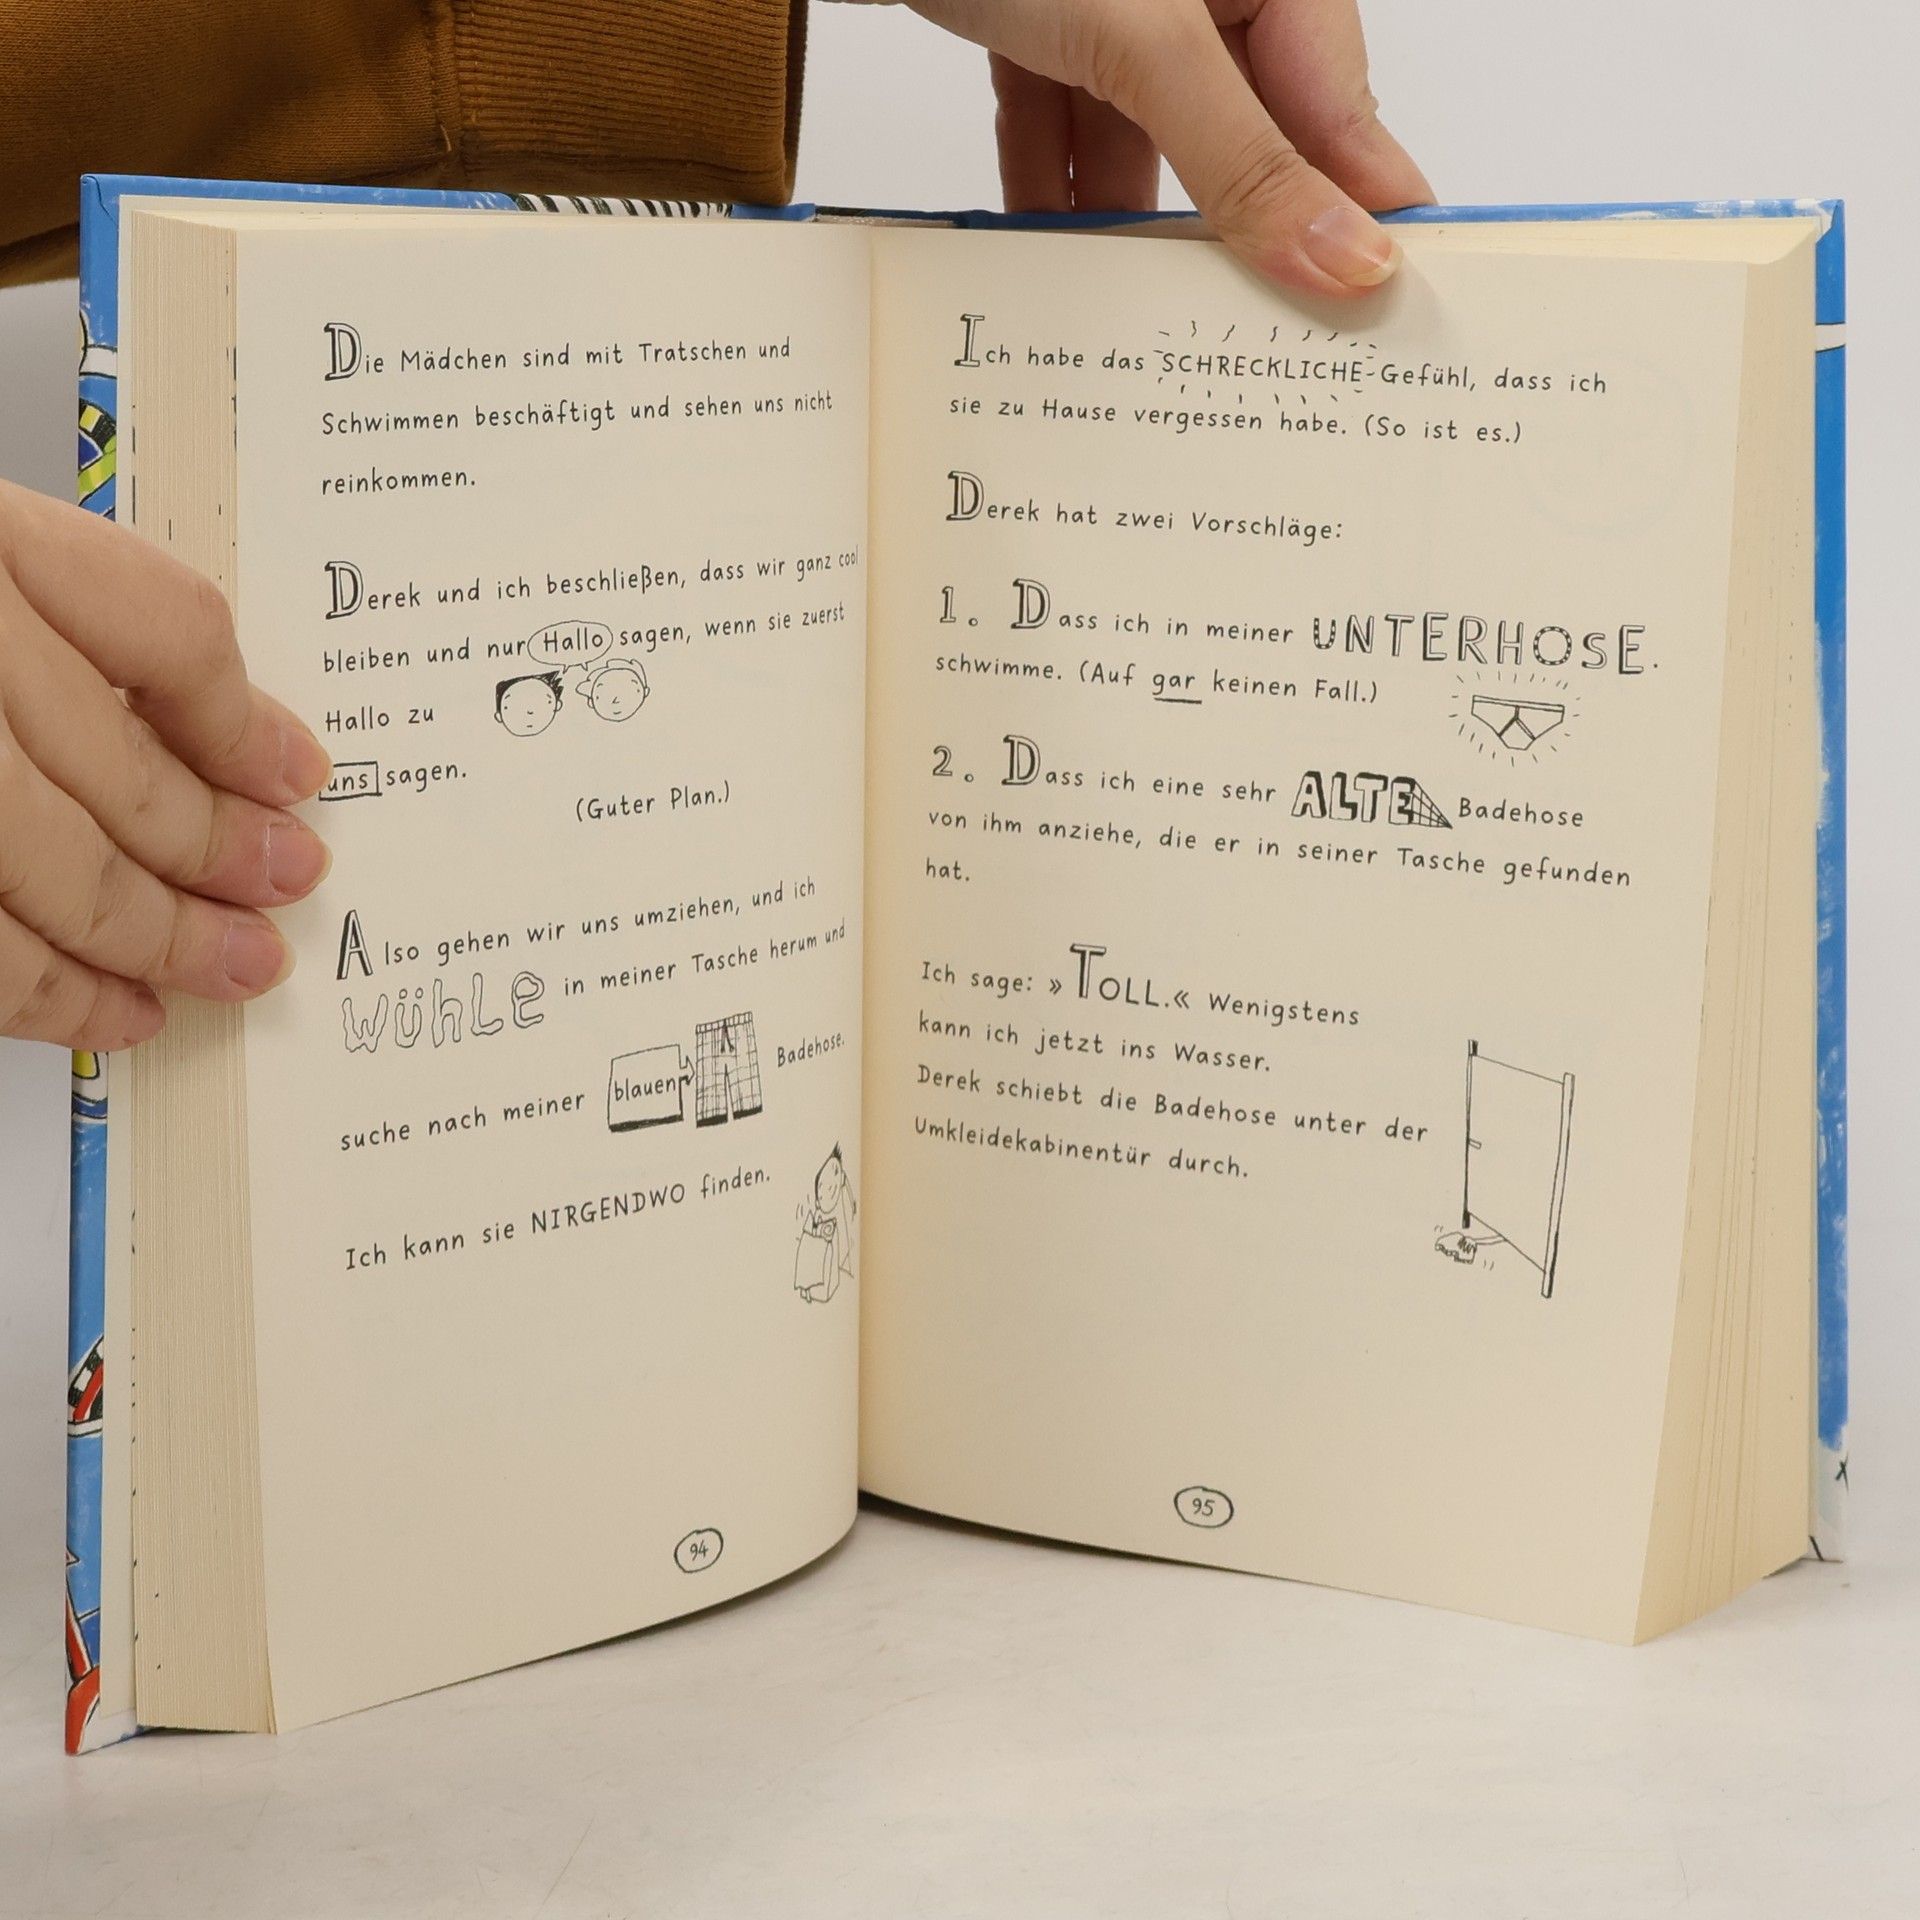 Die Mädchen sind mit Tratschen und
Schwimmen beschäftigt und sehen uns nicht
reinkommen.
Derek und ich beschließen, dass wir ganz cool
bleiben und nur Hallo sagen, wenn sie zuerst
Hallo zu
uns sagen.
(Guter Plan.)
Also gehen wir uns umziehen, und ich
wühle in meiner Tasche herum und
suche nach meiner blauen Badehose.
Ich kann sie NIRGENDWO finden.
94
Ich habe das SCHRECKLICHE Gefühl, dass ich
sie zu Hause vergessen habe. (So ist es.)
Derek hat zwei Vorschläge:
1. Dass ich in meiner UNTERHOSE.
schwimme. (Auf gar keinen Fall.)
2. Dass ich eine sehr ALTE Badehose
von ihm anziehe, die er in seiner Tasche gefunden
hat.
Ich sage: »TOLL.« Wenigstens
kann ich jetzt ins Wasser.
Derek schiebt die Badehose unter der
Umkleidekabinentür durch.
95